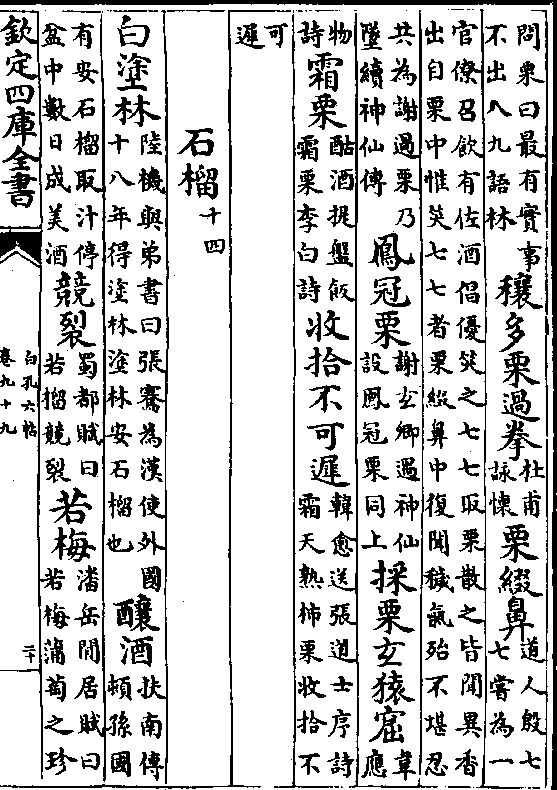 問衆曰最有實事
不出八九語林
穰多栗過拳
杜甫
詠懷
栗綴鼻
道人殷七
七嘗為一
官僚召飲有佐酒倡優笑之七七取栗散之皆聞異香
出自栗中惟笑七七者栗綴鼻中復聞穢氣殆不堪忍
共為謝過栗乃
墜續神仙傳
鳳冠栗
謝玄卿遇神仙
設鳳冠栗同上
採栗玄猿窟
韋
應
物
詩
霜栗
酤酒提盤飯
霜栗李白詩
收拾不可遲
韓愈送張道士序詩
霜天熟柿栗收拾不
可
遲
石榴十四
白塗林
陸機與弟書曰張騫為漢使外國
十八年得塗林塗林安石榴也
釀酒
扶南傳
頓孫國
有安石榴取汁停
盆中數日成美酒
競裂
蜀都賦曰
若榴競裂
若梅
潘岳閒居賦曰
若梅蒲萄之珍
欽定四庫全書
白孔六帖
卷九十九
二十